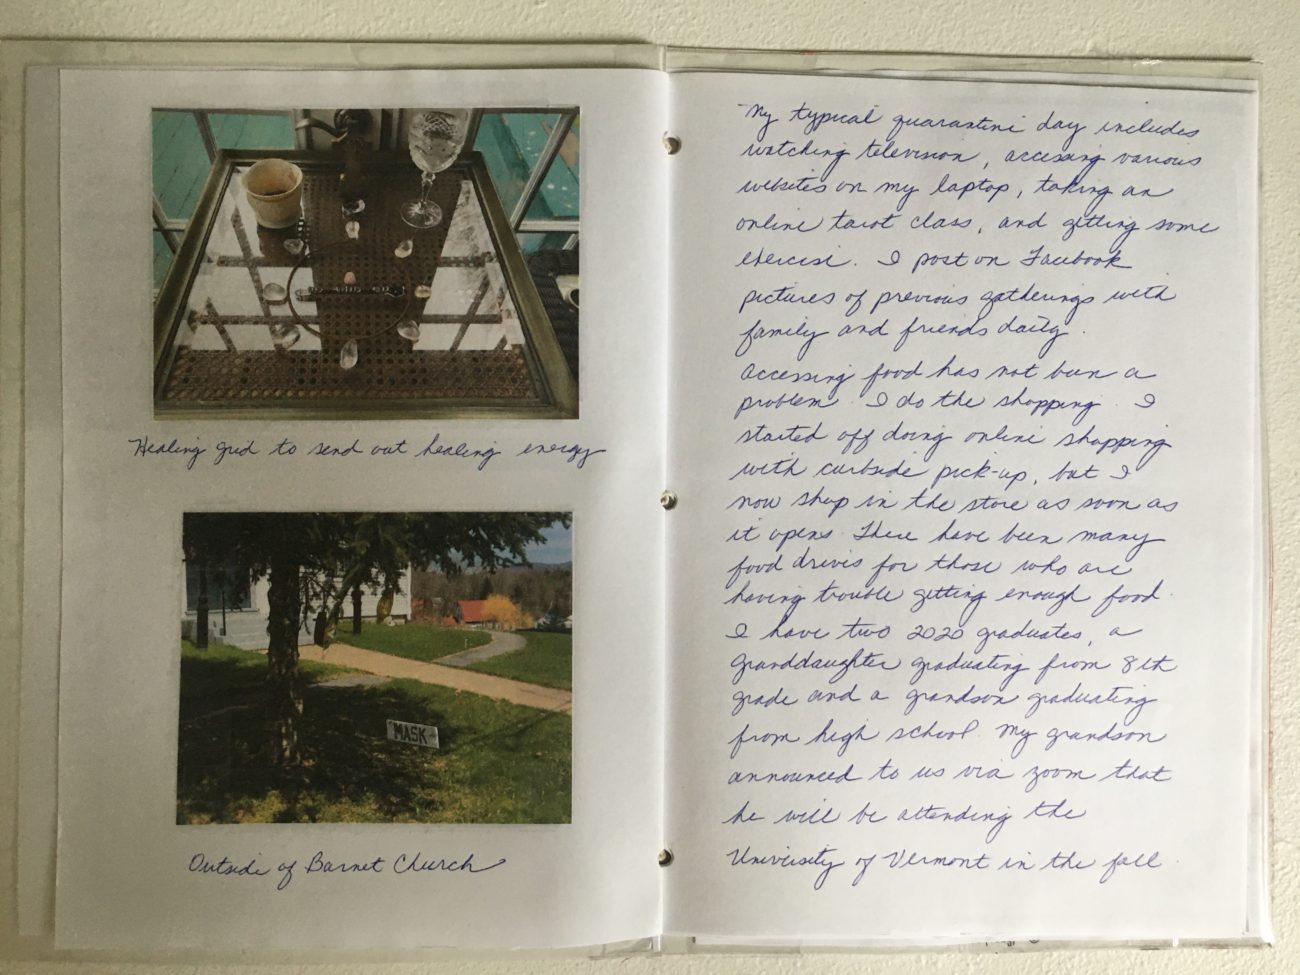 Healing grid to send out healing energy
MASK
Outside of Barnet Church
My typical quarantine day includes
watching television, accessing various
websites on my laptop, taking an
online tarot class, and getting some
exercise. I post on Facebook
pictures of previous gatherings with
family and friends daily.
Accessing food has not been a
problem. I do the shopping. I
started off doing online shopping
with curbside pick-up, but I
now shop in the store as soon as
it opens. There have been many
food drives for those who are
having trouble getting enough food.
I have two 2020 graduates, a
granddaughter graduating from 8th
grade and a grandson graduating
from high school. My grandson
announced to us via zoom that
he will be attending the
University of Vermont in the fall.